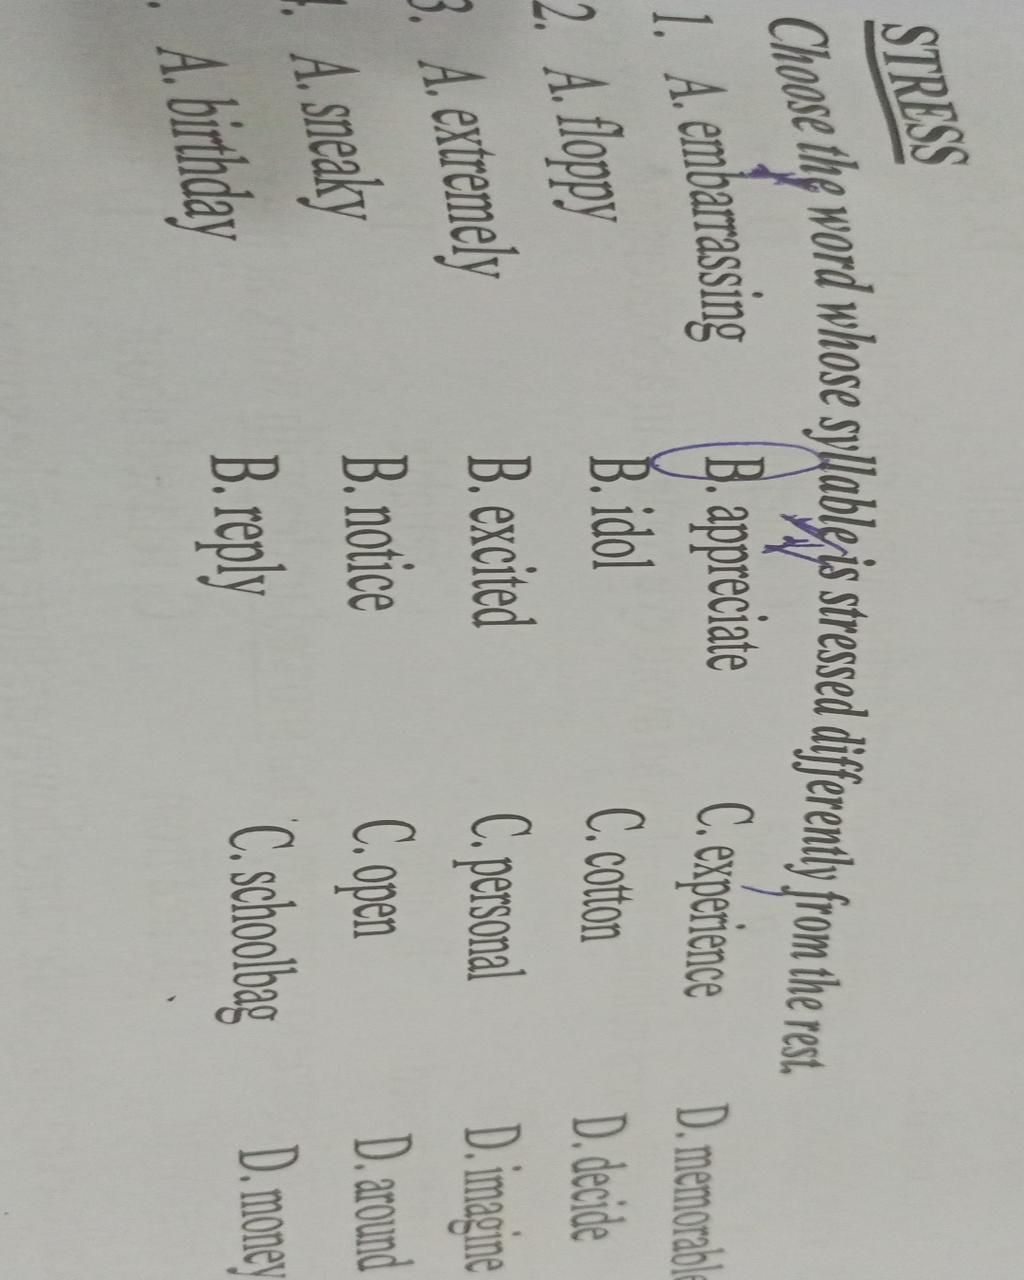 STRESS
Choose the word whose syllable is stressed differently from the rest.
1. A. embarrassing B. appreciate C. experience D. memorable
2. A. floppy B. idol C. cotton D. decide
3. A. extremely B. excited C. personal D. imagine
4. A. sneaky B. notice C. open D. around
A. birthday B. reply C. schoolbag D. money